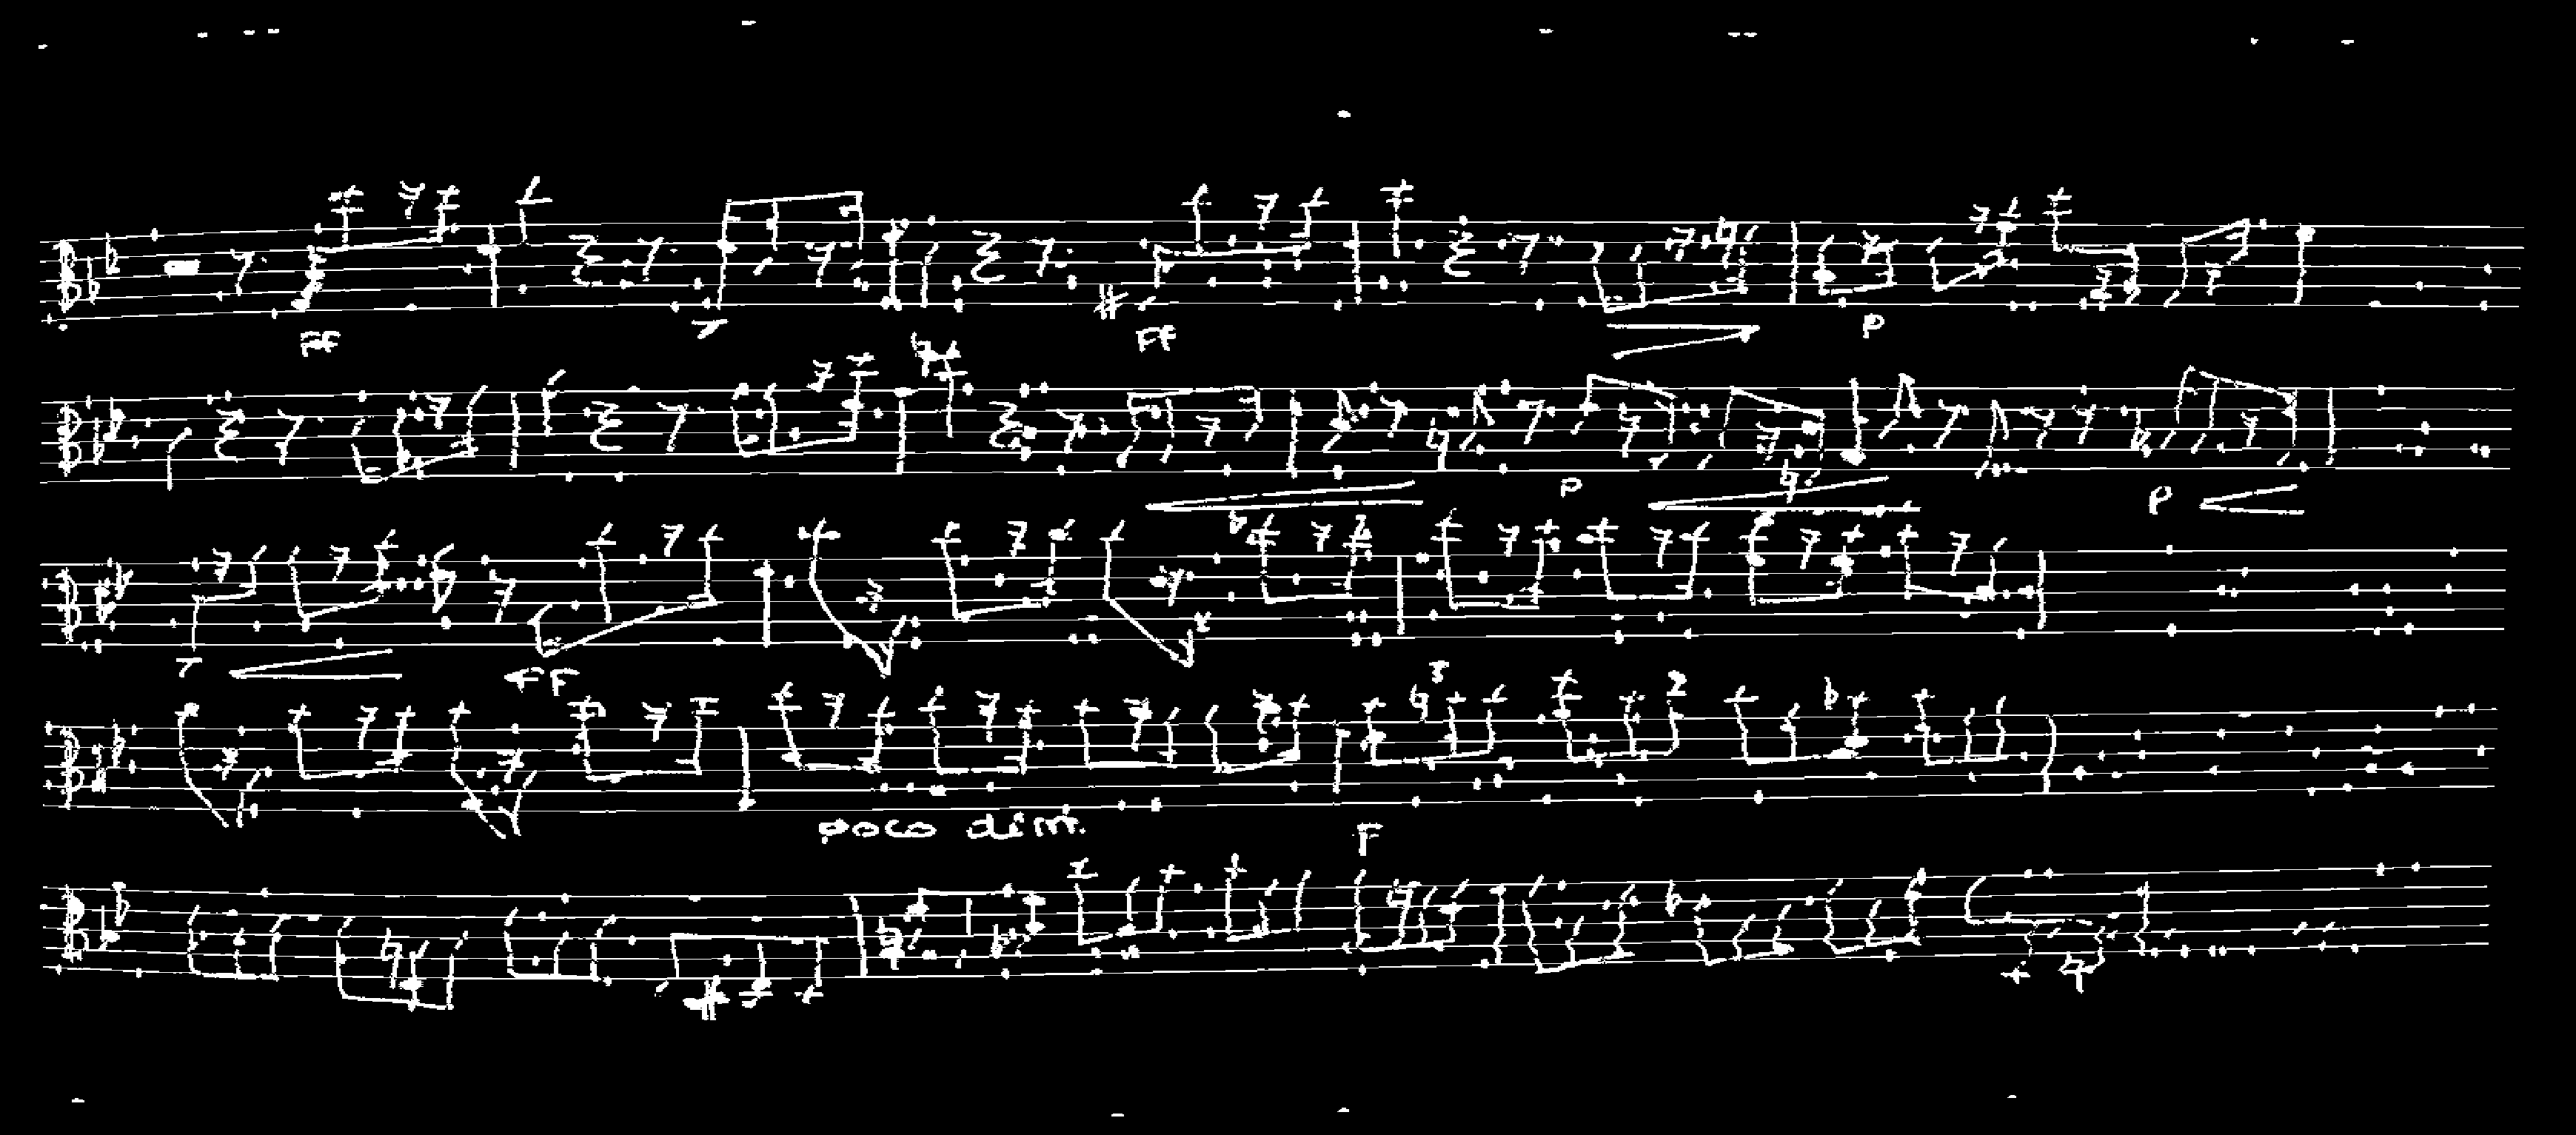 FF FF P
P P
FF
3 2
poco dim. F